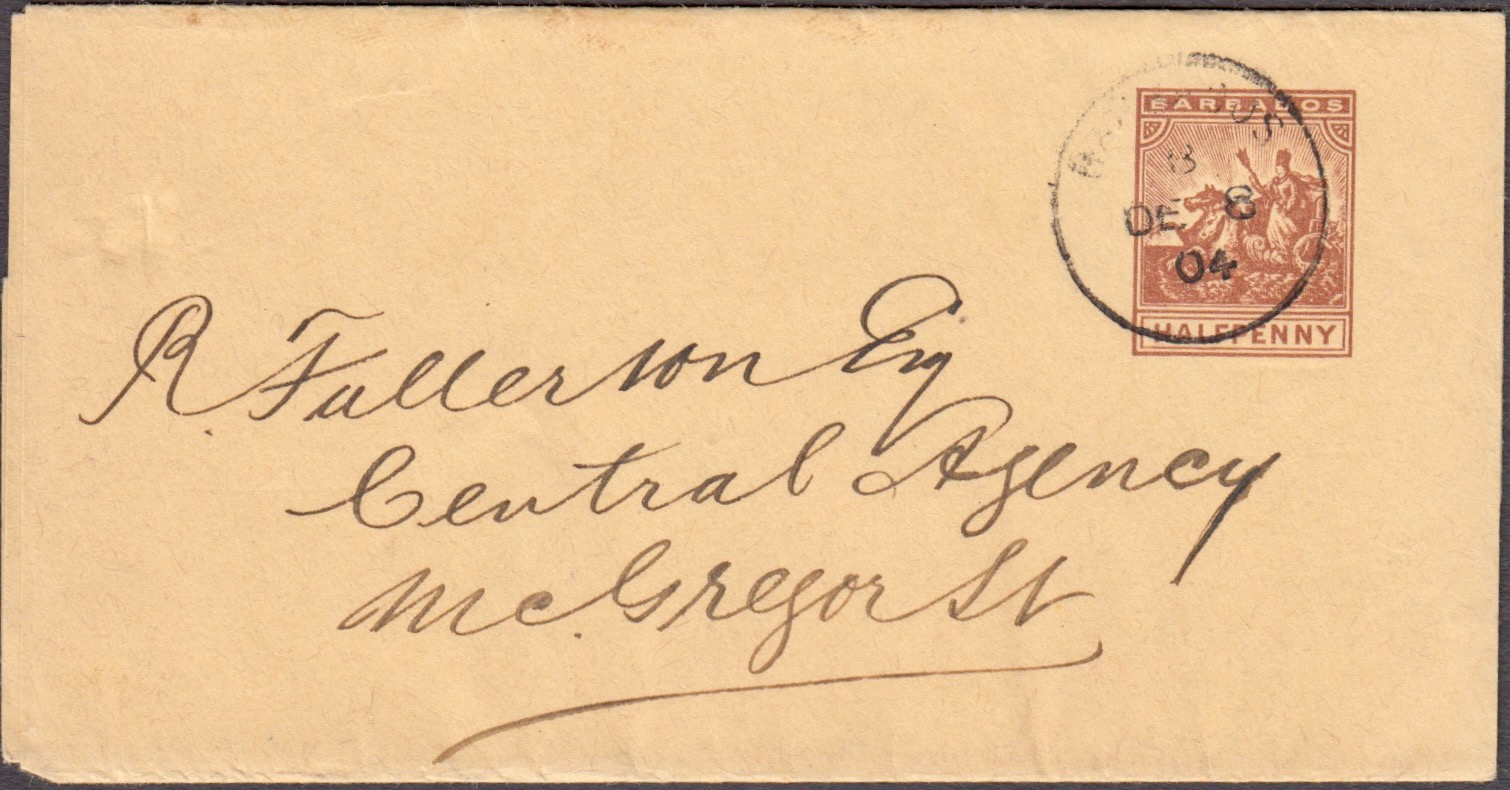 BARBADOS
BARBADOS
B
DE 8
04
HALFPENNY
R. Fullerson Esq
Central Agency
McGregor St